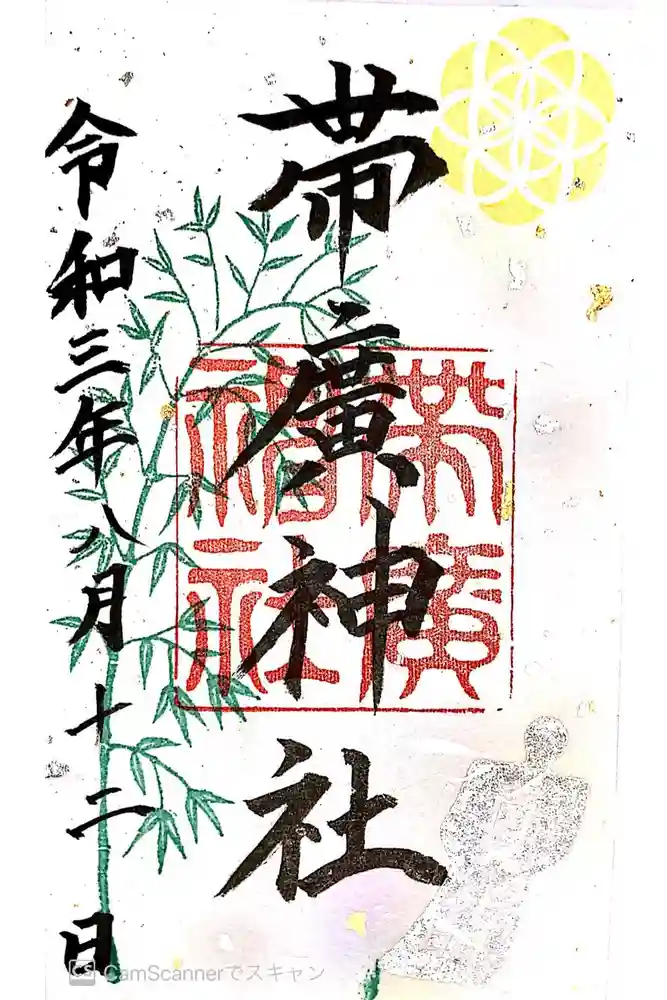 帯廣神社
帯廣
神社
令和三年八月十二日
CS CamScannerでスキャン